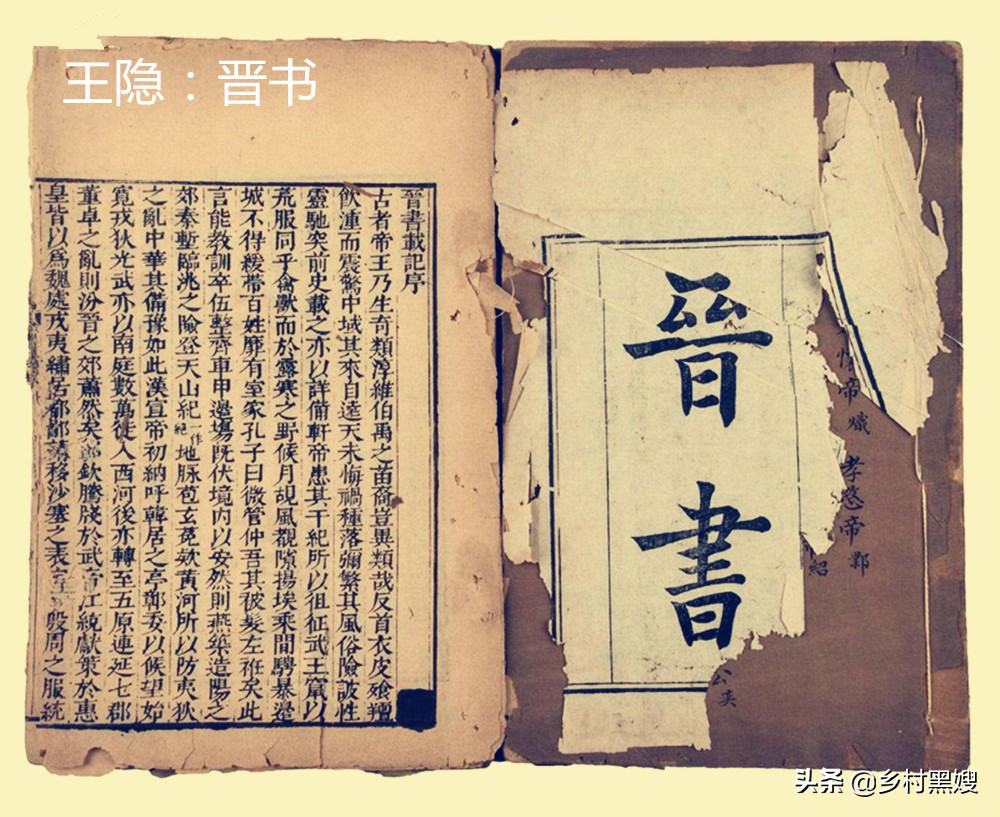 王隐：晋书
晉書載記序
古者帝王乃生奇類淳維伯禹之苗裔豈異類哉反首衣皮飱羶
飲湩而震驚中域其來自遠天未悔禍種落彌繁其風俗險詖性
靈馳突前史載之亦以詳備軒帝患其干紀所以徂征武王竄以
荒服同乎禽獸而於露寒之野候月覘風覩隙揚埃乘間騁暴邊
城不得緩帶百姓靡有室家孔子曰微管仲吾其被髮左衽矣此
言能教訓卒伍整齊車甲邊場既伏境内以安然則燕築造陽之
郊秦塹臨洮之險登天山紀一作絶地脉苞玄菟欸黃河所以防夷狄
之亂中華其備豫如此漢宣帝初納呼韓居之亭鄣委以候望始
寬戎狄光武亦以南庭數萬徒入西河後亦轉至五原連延七郡
董卓之亂則汾晉之郊蕭然矣郭欽騰牋於武帝江統獻策於惠
皇皆以爲魏處戎夷繡居都鄙請移沙塞之表定 殷周之服統
晉書
懷帝熾
孝愍帝鄴
紹
公奕
头条 @乡村黑嫂